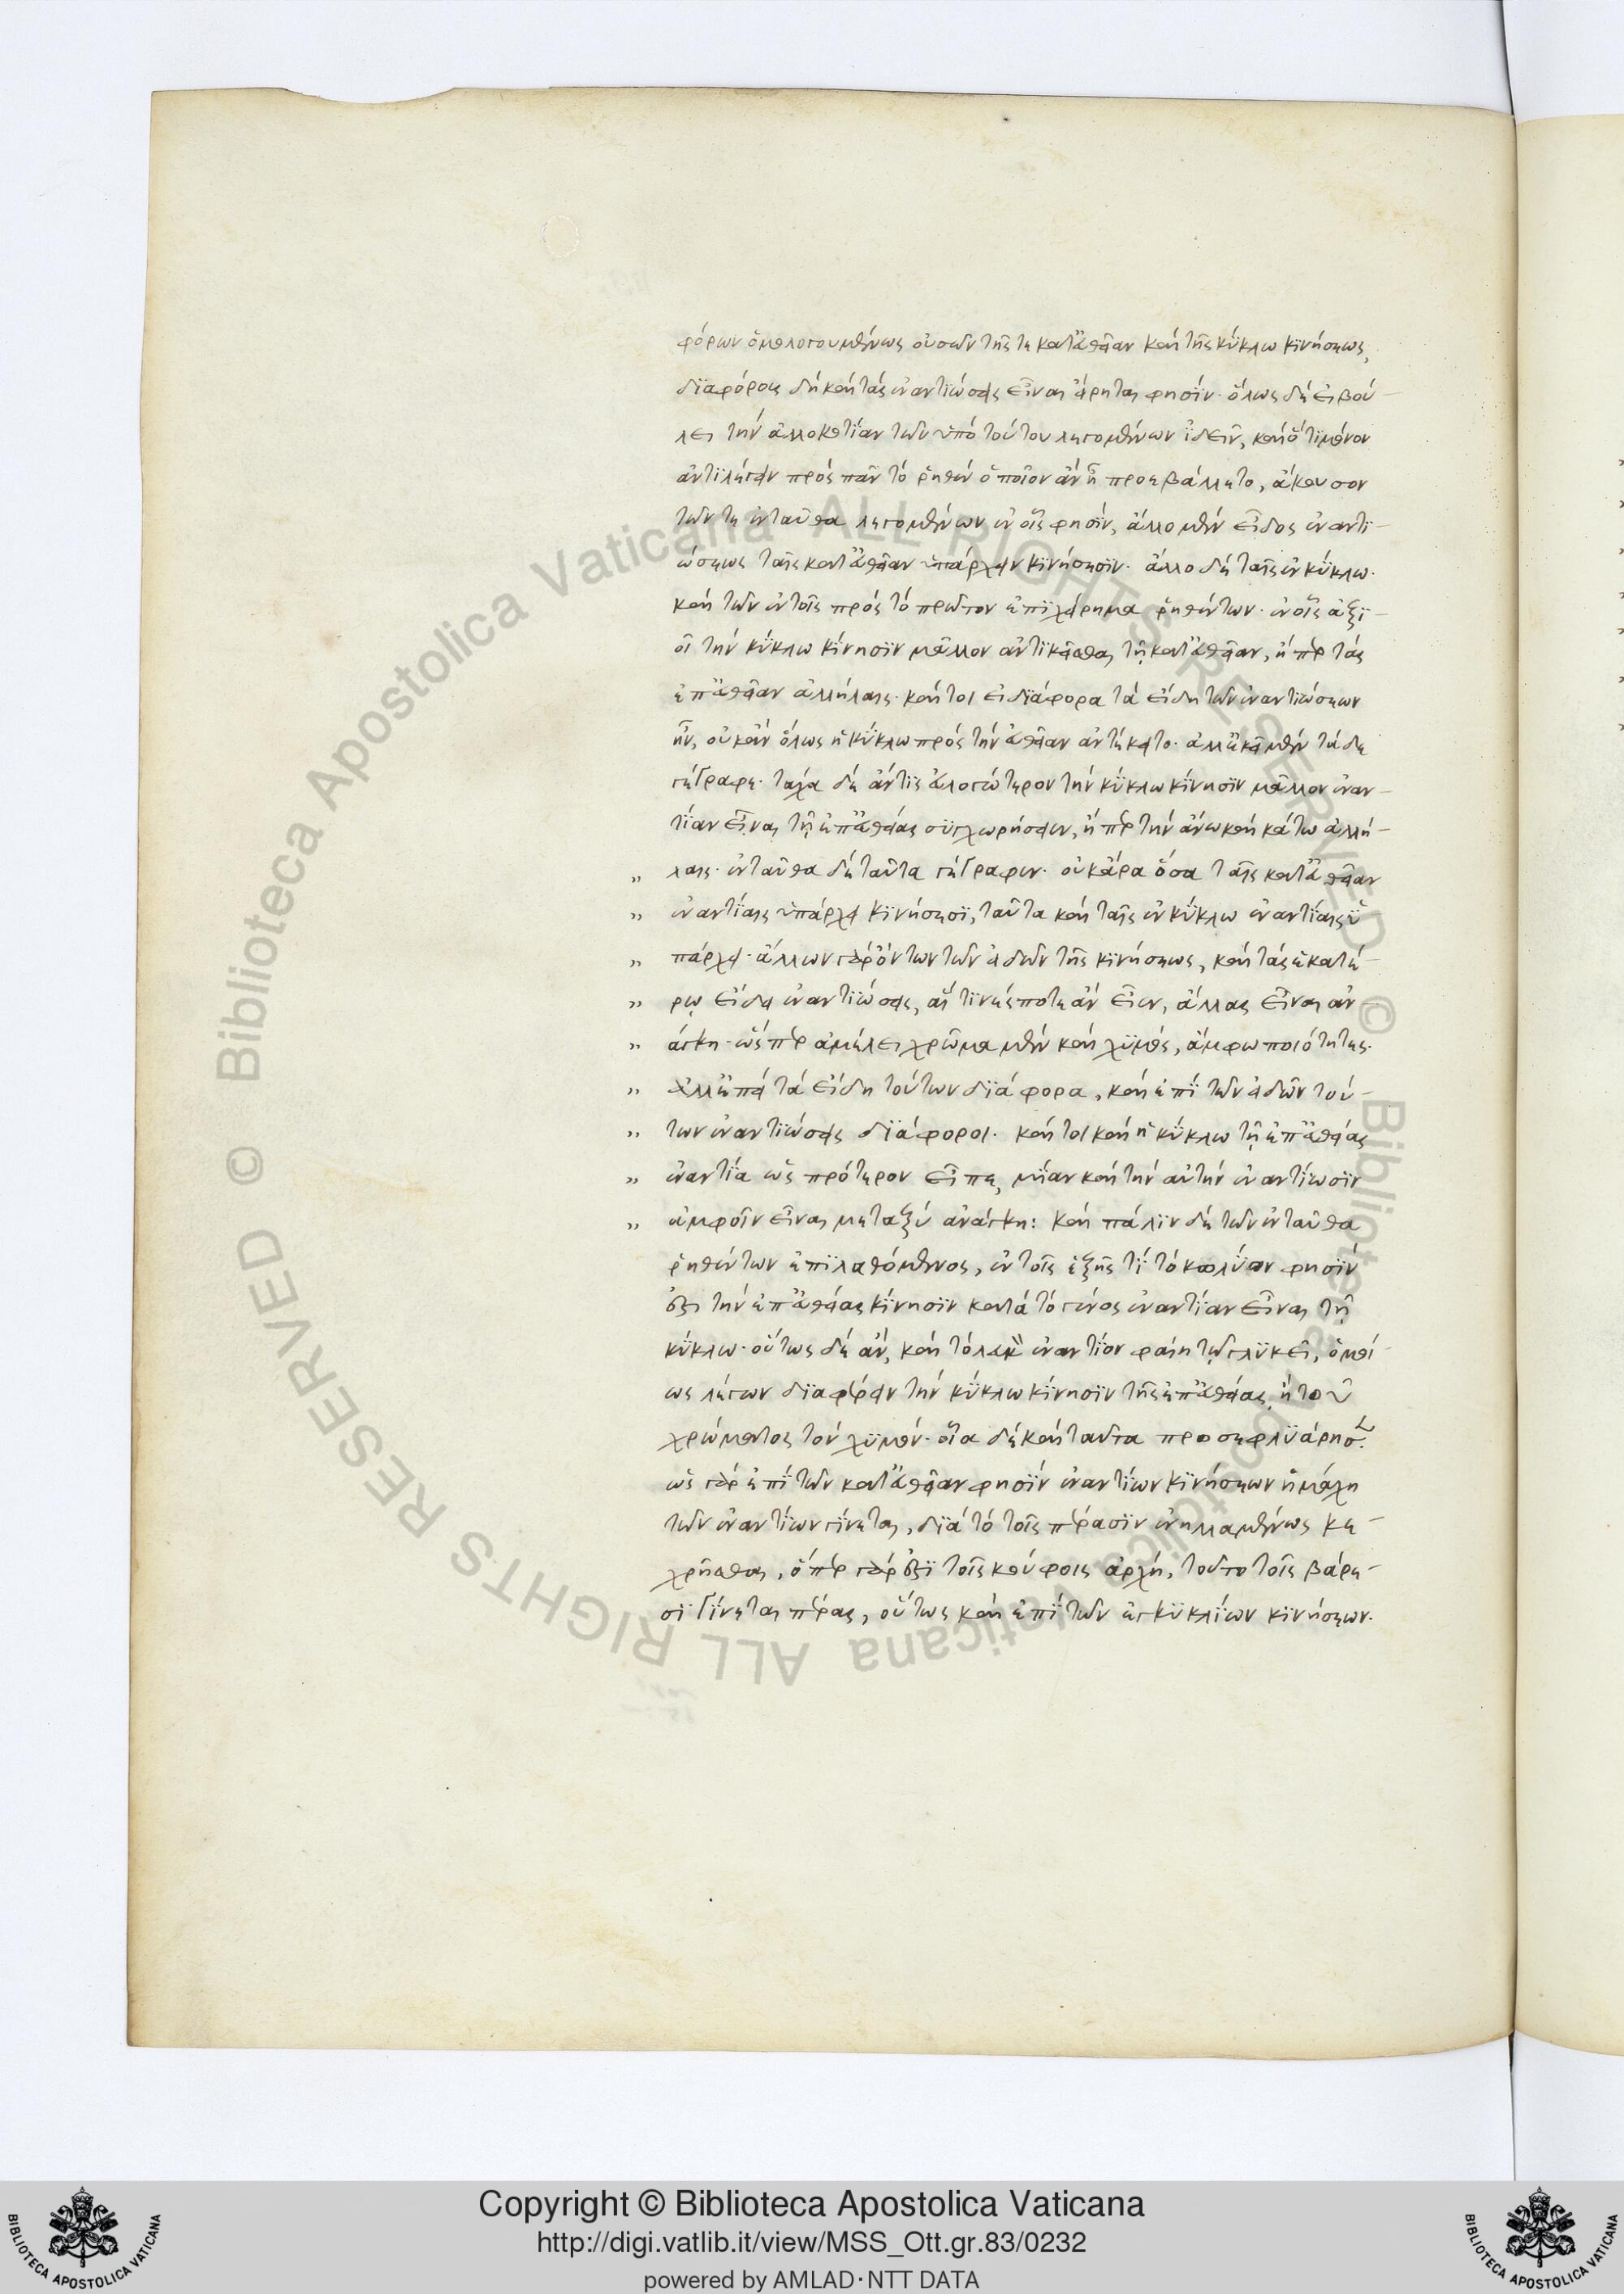 φόρων ὁμολογουμένως οὐσῶν τῆς τε κατ' εὐθεῖαν καὶ τῆς κύκλω κινήσεως,
διαφόρους δὴ καὶ τὰς ἐναντιώσεις εἶναι εἴρηται φησίν. ὅλως δὲ εἰ βού-
λει τὴν ἀλλοκοτίαν τῶν ὑπὸ τούτου λεγομένων ἰδεῖν, καὶ ὅτι μόνον
ἀντιλέγειν πρὸς πᾶν τὸ ῥηθὲν ὁποῖον ἂν ᾖ προεβάλλετο, ἄκουσον
τῶν τε ἐνταῦθα λεγομένων ἐν οἷς φησίν, ἄλλο μὲν εἶδος ἐναντι-
ώσεως ταῖς κατ' εὐθεῖαν ὑπάρχειν κινήσεσιν. ἄλλο δὲ ταῖς ἐν κύκλω.
καὶ τῶν ἐν τοῖς πρὸς τὸ πρῶτον ἐπιχείρημα ῥηθέντων. ἐν οἷς ἀξι-
οῖ τὴν κύκλω κίνησιν μᾶλλον ἀντικεῖσθαι τῇ κατ' εὐθεῖαν, ἤπερ τὰς
ἐπ' εὐθεῖαν ἀλλήλαις. καίτοι εἰ διάφορα τὰ εἴδη τῶν ἐναντιώσεων
ἦν, οὐκ ἂν ὅλως ἡ κύκλω πρὸς τὴν εὐθεῖαν ἀντέκειτο. ἀλλ' ἐκεῖ μὲν τάδε
γέγραφε. τάχα δὲ ἄν τις εὐλογώτερον τὴν κύκλω κίνησιν μᾶλλον ἐναν-
τίαν εἶναι τῇ ἐπ' εὐθείας συγχωρήσειεν, ἤπερ τὴν ἄνω καὶ κάτω ἀλλή-
" λαις. ἐνταῦθα δὲ ταῦτα γέγραφεν. οὐκ ἄρα ὅσα ταῖς κατ' εὐθεῖαν
" ἐναντίαις ὑπάρχει κινήσεσι, ταῦτα καὶ ταῖς ἐν κύκλω ἐναντίαις ὑ
" πάρχει. ἄλλων γὰρ ὄντων τῶν εἰδῶν τῆς κινήσεως, καὶ τὰς ἑκατέ-
" ρῳ εἴδει ἐναντιώσεις, αἵ τινές ποτε ἂν εἶεν, ἄλλας εἶναι ἀν
" άγκη. ὥσπερ ἀμέλει χρῶμα μὲν καὶ χυμός, ἄμφω ποιότητες.
" ἀλλ' ἐπεὶ τὰ εἴδη τούτων διάφορα, καὶ ἐπὶ τῶν εἰδῶν τού-
" των ἐναντιώσεις διάφοροι. καίτοι καὶ ἡ κύκλω τῇ ἐπ' εὐθείας
" ἐναντία ὡς πρότερον εἶπε, μίαν καὶ τὴν αὐτὴν ἐναντίωσιν
" ἀμφοῖν εἶναι μεταξὺ ἀνάγκη: καὶ πάλιν δὲ τῶν ἐνταῦθα
ῥηθέντων ἐπιλαθόμενος, ἐν τοῖς ἑξῆς τί τὸ κωλύον φησὶν
ἐστὶ τὴν ἐπ' εὐθείας κίνησιν κατὰ τὸ γένος ἐναντίαν εἶναι τῇ
κύκλω. οὕτως δὲ ἄν, καὶ τὸ λευκὸν ἐναντίον φαίη τῷ γλυκεῖ, ὁμοί-
ως λέγων διαφέρειν τὴν κύκλω κίνησιν τῆς ἐπ' εὐθείας, ἢ τοῦ
χρώματος τὸν χυμόν. οἷα δὲ καὶ ταῦτα προσεφλυάρησ.
ὡς γὰρ ἐπὶ τῶν κατ' εὐθεῖαν φησὶν ἐναντίων κινήσεων ἡ μάχη
τῶν ἐναντίων γίνεται, διὰ τὸ τοῖς πέρασιν ἐνηλλαγμένως κε-
χρῆσθαι, ὅπερ γάρ ἐστι τοῖς κούφοις ἀρχή, τοῦτο τοῖς βάρε-
σι γίνεται πέρας, οὕτως καὶ ἐπὶ τῶν ἐγκυκλίων κινήσεων.
© Biblioteca Apostolica Vaticana ALL RIGHTS RESERVED © Biblioteca Apostolica Vaticana ALL RIGHTS RESERVED
Copyright © Biblioteca Apostolica Vaticana
http://digi.vatlib.it/view/MSS_Ott.gr.83/0232
powered by AMLAD·NTT DATA
BIBLIOTECA APOSTOLICA VATICANA
BIBLIOTECA APOSTOLICA VATICANA